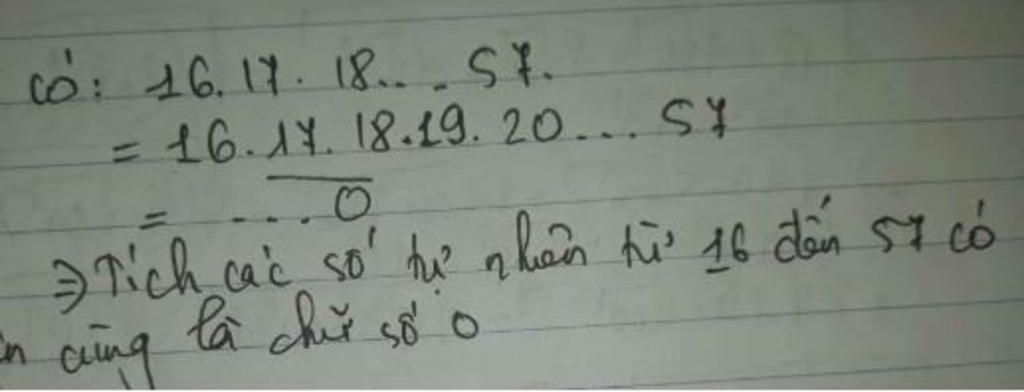 có: 16.17.18... 57.
= 16.17.18.19.20... 57
= ....0
⇒ Tích các số tự nhiên từ 16 đến 57 có
cùng là chữ số 0